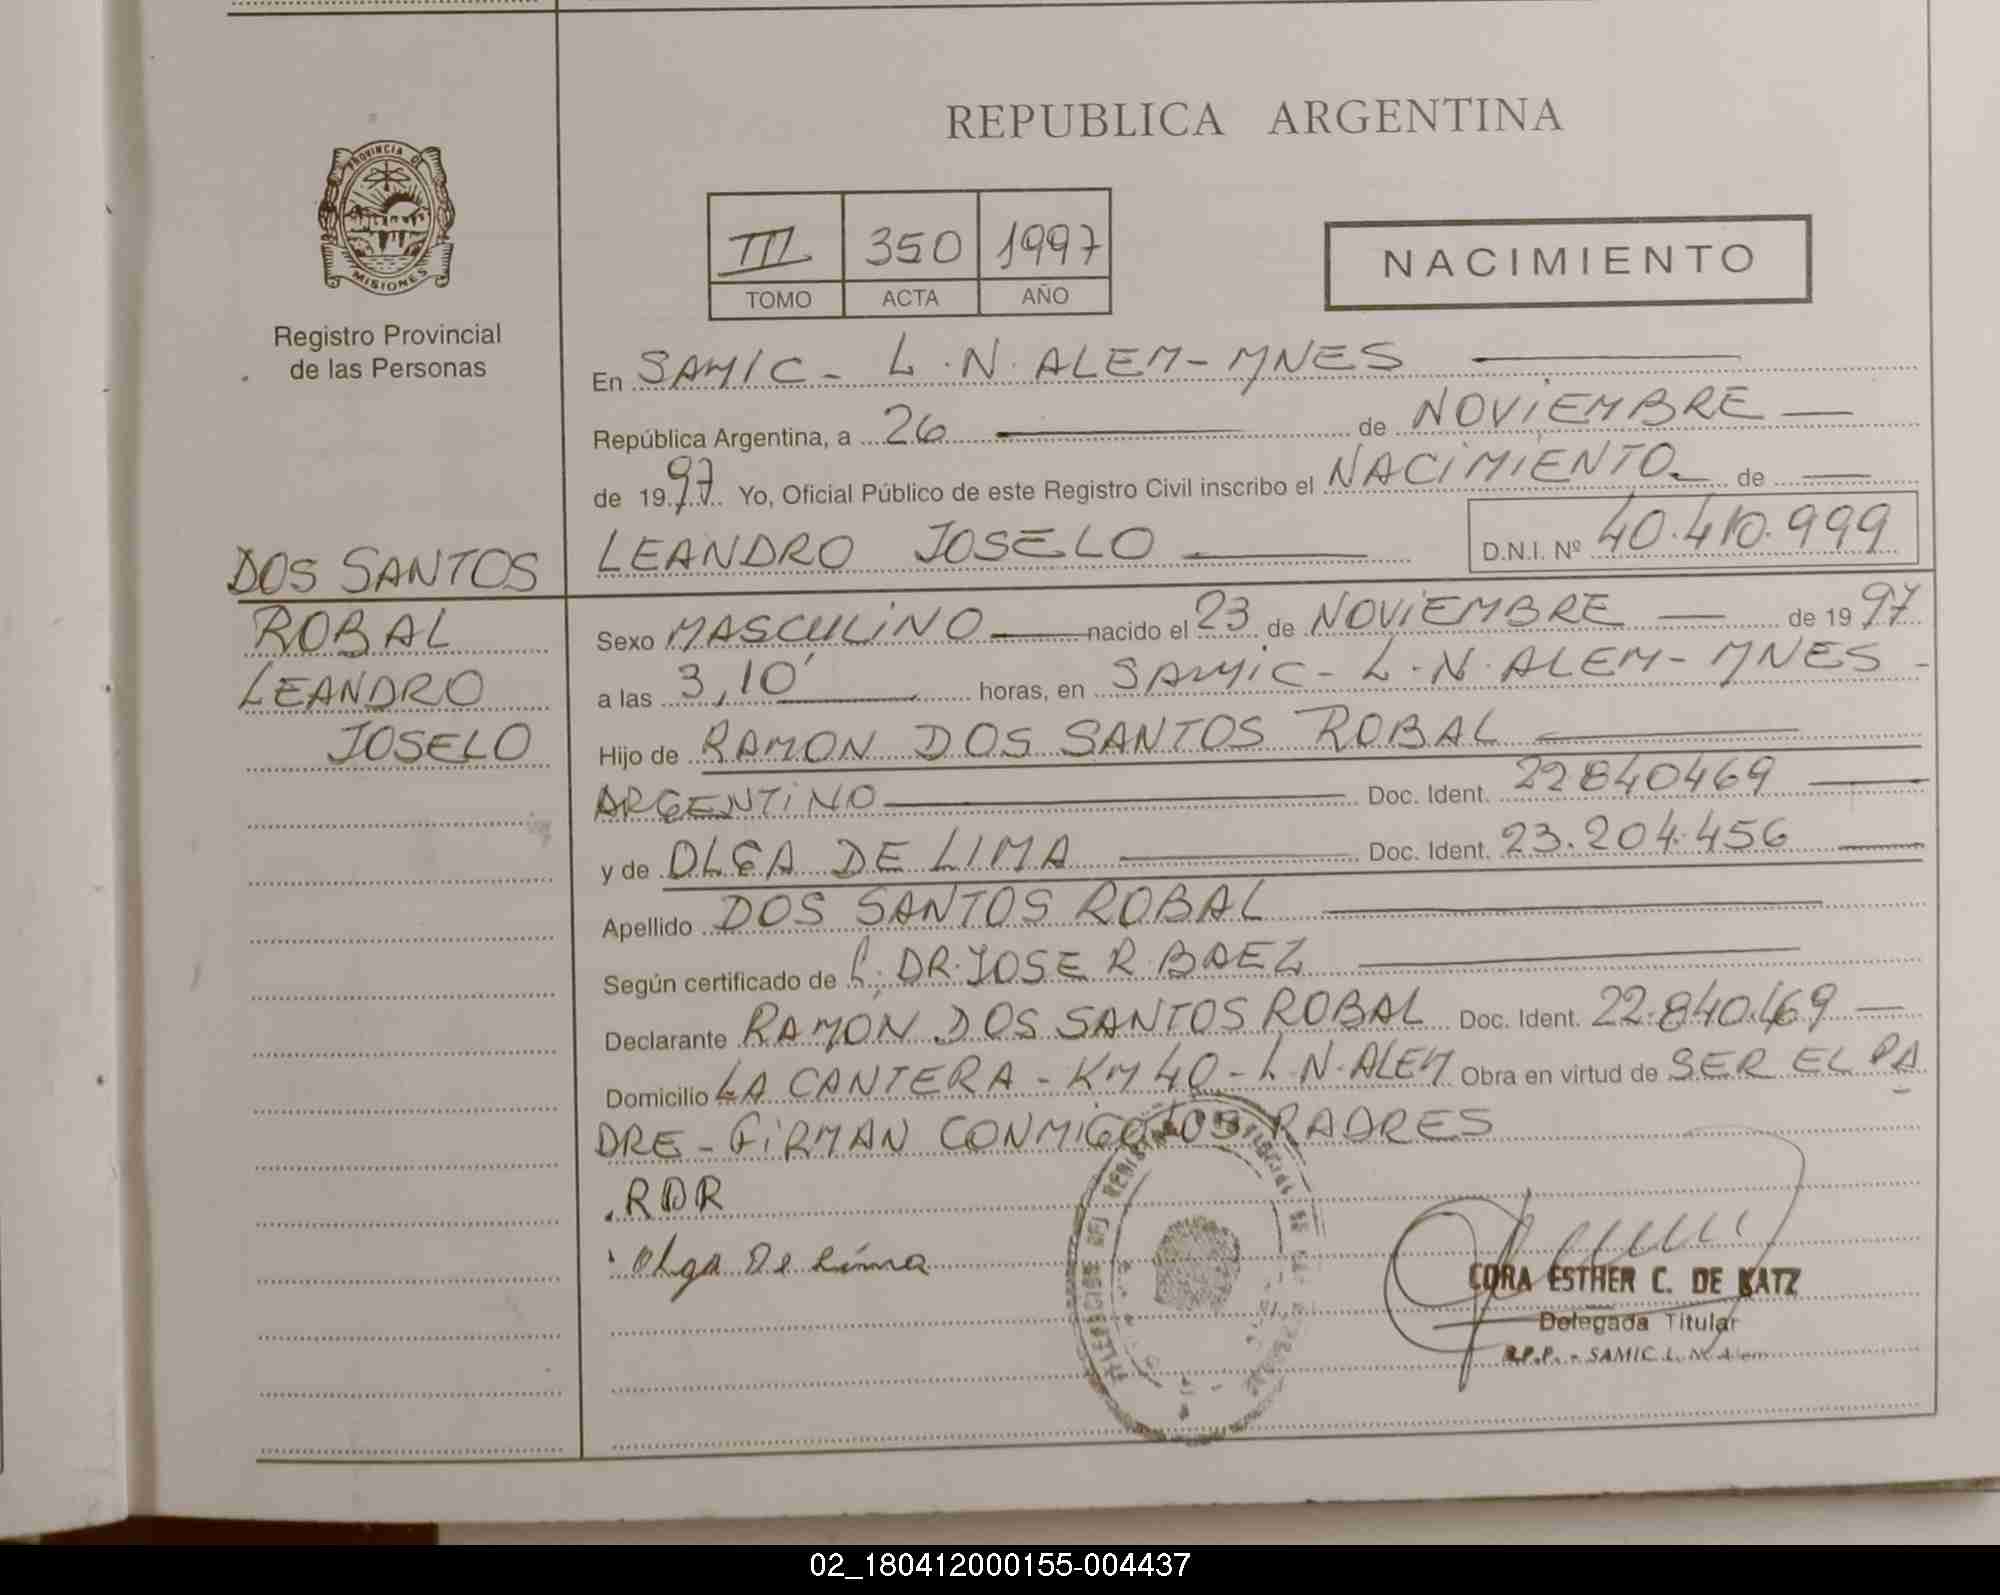 REPUBLICA ARGENTINA
PROVINCIA DE
MISIONES
Registro Provincial
de las Personas
III 350 1997
TOMO ACTA AÑO
NACIMIENTO
En SAMIC - L.N. ALEM - MNES
República Argentina, a 26 de NOVIEMBRE
de 1997 Yo, Oficial Público de este Registro Civil inscribo el NACIMIENTO de
LEANDRO JOSELO D.N.I. Nº 40.410.999
DOS SANTOS
ROBAL
LEANDRO
JOSELO
Sexo MASCULINO nacido el 23 de NOVIEMBRE de 1997
a las 3,10' horas, en SAMIC - L.N. ALEM - MNES -
Hijo de RAMON DOS SANTOS ROBAL
ARGENTINO Doc. Ident. 22840469
y de OLGA DE LIMA Doc. Ident. 23.204.456
Apellido DOS SANTOS ROBAL
Según certificado de DR. JOSE R. BAEZ
Declarante RAMON DOS SANTOS ROBAL Doc. Ident. 22.840.469
Domicilio LA CANTERA - KM 40 - L.N. ALEM Obra en virtud de SER EL PA
DRE - FIRMAN CONMIGO LOS PADRES
RDR
Olga De Lima
CORA ESTHER C. DE KATZ
Delegada Titular
R.P.P. - SAMIC L. N. Alem
02_180412000155-004437